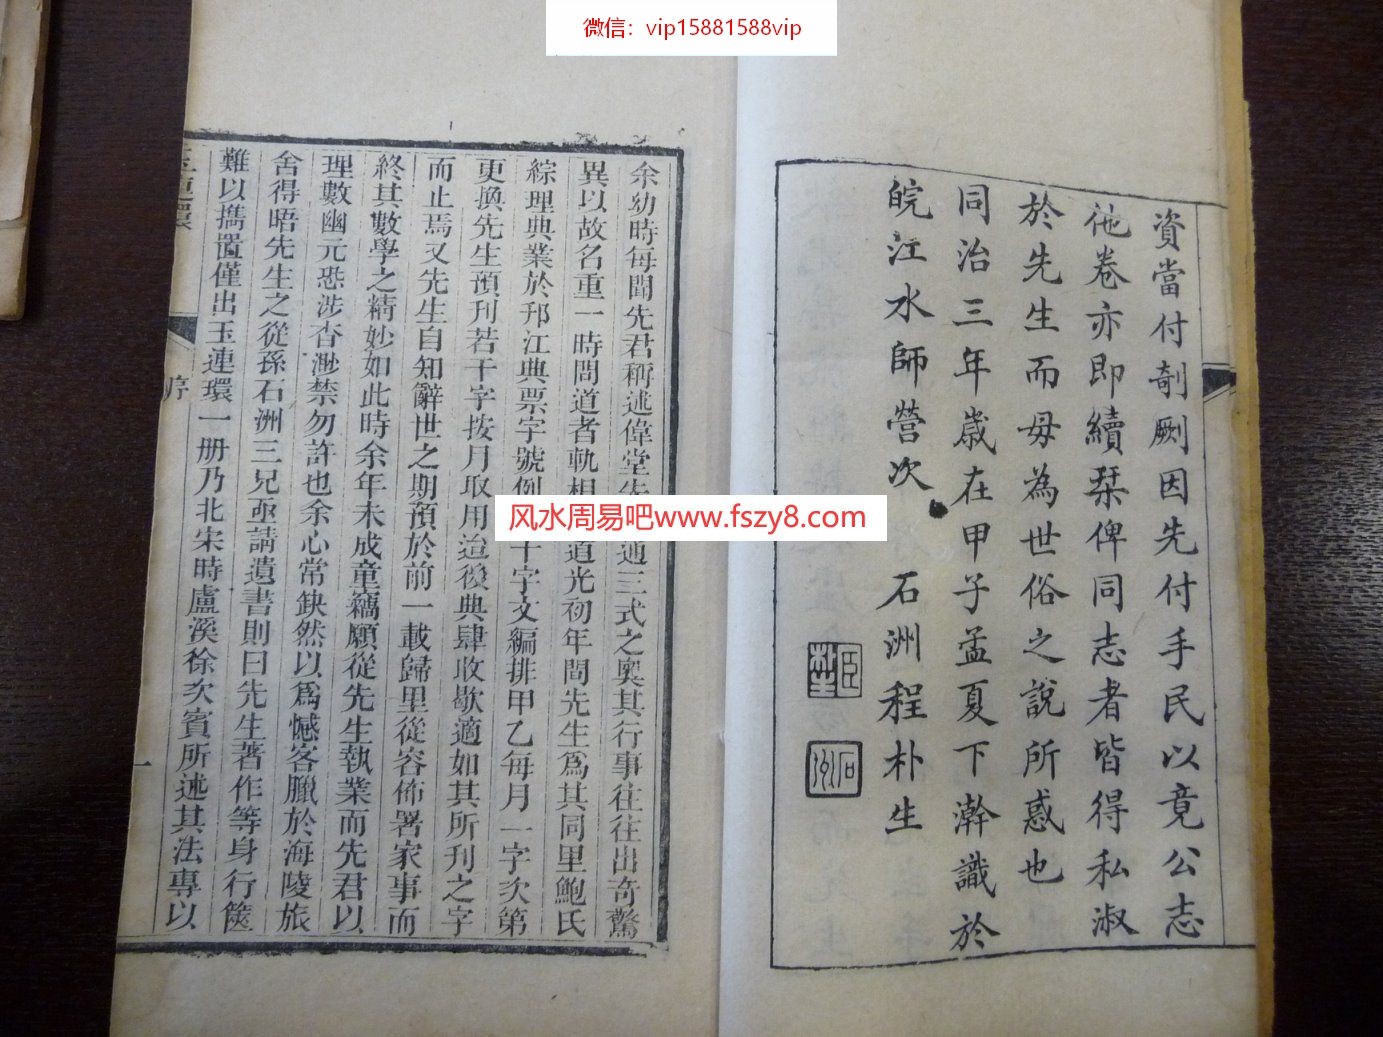 微信：vip15881588vip
資當付剞劂因先付手民以竟公志
他卷亦即續栞俾同志者皆得私淑
於先生而毋為世俗之說所惑也
同治三年歲在甲子孟夏下澣識於
皖江水師營次 石洲程朴生
余幼時每聞先君稱述偉堂先 通三式之奧其行事往往出奇驚
異以故名重一時問道者軌相 道光初年間先生爲其同里鮑氏
綜理典業於邗江典票字號例 十字文編排甲乙每月一字次第
更換先生預刊若干字按月取用迨後典肆收歇適如其所刊之字
而止焉又先生自知辭世之期預於前一載歸里從容佈署家事而
終其數學之精妙如此時余年未成童竊願從先生執業而先君以
理數幽元恐涉杳渺禁勿許也余心常鈌然以爲憾客臘於海陵旅
舍得晤先生之從孫石洲三兄亟請遺書則曰先生著作等身行篋
難以攜置僅出玉連環一册乃北宋時盧溪徐次賓所述其法專以
玉連環
序
一
风水周易吧www.fszy8.com